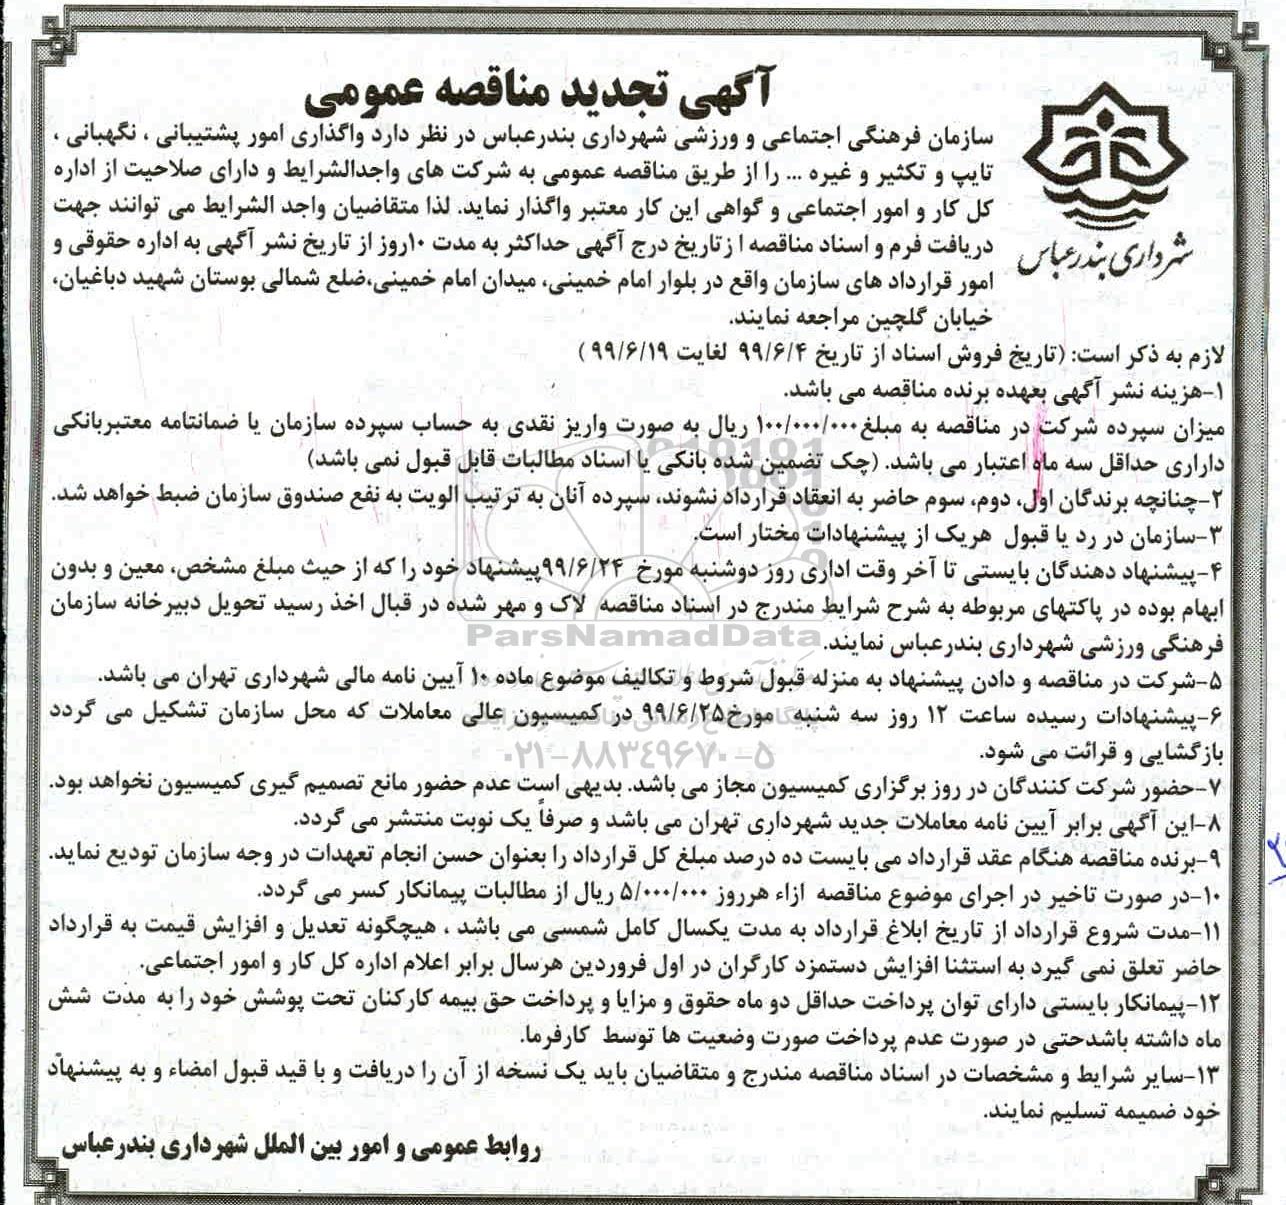 آگهی تجدید مناقصه عمومی
شهرداری بندرعباس
سازمان فرهنگی اجتماعی و ورزشی شهرداری بندرعباس در نظر دارد واگذاری امور پشتیبانی ، نگهبانی ،
تایپ و تکثیر و غیره ... را از طریق مناقصه عمومی به شرکت های واجدالشرایط و دارای صلاحیت از اداره
کل کار و امور اجتماعی و گواهی این کار معتبر واگذار نماید. لذا متقاضیان واجد الشرایط می توانند جهت
دریافت فرم و اسناد مناقصه ا زتاریخ درج آگهی حداکثر به مدت ۱۰روز از تاریخ نشر آگهی به اداره حقوقی و
امور قرارداد های سازمان واقع در بلوار امام خمینی، میدان امام خمینی،ضلع شمالی بوستان شهید دباغیان،
خیابان گلچین مراجعه نمایند.
لازم به ذکر است: (تاریخ فروش اسناد از تاریخ ۹۹/۶/۴ لغایت ۹۹/۶/۱۹ )
۱-هزینه نشر آگهی بعهده برنده مناقصه می باشد.
میزان سپرده شرکت در مناقصه به مبلغ۱۰۰/۰۰۰/۰۰۰ ریال به صورت واریز نقدی به حساب سپرده سازمان یا ضمانتنامه معتبربانکی
داراری حداقل سه ماه اعتبار می باشد. (چک تضمین شده بانکی یا اسناد مطالبات قابل قبول نمی باشد)
۲-چنانچه برندگان اول، دوم، سوم حاضر به انعقاد قرارداد نشوند، سپرده آنان به ترتیب الویت به نفع صندوق سازمان ضبط خواهد شد.
۳-سازمان در رد یا قبول هریک از پیشنهادات مختار است.
۴-پیشنهاد دهندگان بایستی تا آخر وقت اداری روز دوشنبه مورخ ۹۹/۶/۲۴پیشنهاد خود را که از حیث مبلغ مشخص، معین و بدون
ابهام بوده در پاکتهای مربوطه به شرح شرایط مندرج در اسناد مناقصه لاک و مهر شده در قبال اخذ رسید تحویل دبیرخانه سازمان
ParsNamadData
فرهنگی ورزشی شهرداری بندرعباس نمایند.
۵-شرکت در مناقصه و دادن پیشنهاد به منزله قبول شروط و تکالیف موضوع ماده ۱۰ آیین نامه مالی شهرداری تهران می باشد.
۶-پیشنهادات رسیده ساعت ۱۲ روز سه شنبه مورخ۹۹/۶/۲۵ در کمیسیون عالی معاملات که محل سازمان تشکیل می گردد
بازگشایی و قرائت می شود.
۰۲۱-۸۸۳۴۹۶۷۰-۵
۷-حضور شرکت کنندگان در روز برگزاری کمیسیون مجاز می باشد. بدیهی است عدم حضور مانع تصمیم گیری کمیسیون نخواهد بود.
۸-این آگهی برابر آیین نامه معاملات جدید شهرداری تهران می باشد و صرفاً یک نوبت منتشر می گردد.
۹-برنده مناقصه هنگام عقد قرارداد می بایست ده درصد مبلغ کل قرارداد را بعنوان حسن انجام تعهدات در وجه سازمان تودیع نماید.
۱۰-در صورت تاخیر در اجرای موضوع مناقصه ازاء هرروز ۵/۰۰۰/۰۰۰ ریال از مطالبات پیمانکار کسر می گردد.
۱۱-مدت شروع قرارداد از تاریخ ابلاغ قرارداد به مدت یکسال کامل شمسی می باشد ، هیچگونه تعدیل و افزایش قیمت به قرارداد
حاضر تعلق نمی گیرد به استثنا افزایش دستمزد کارگران در اول فروردین هرسال برابر اعلام اداره کل کار و امور اجتماعی.
۱۲-پیمانکار بایستی دارای توان پرداخت حداقل دو ماه حقوق و مزایا و پرداخت حق بیمه کارکنان تحت پوشش خود را به مدت شش
ماه داشته باشدحتی در صورت عدم پرداخت صورت وضعیت ها توسط کارفرما.
۱۳-سایر شرایط و مشخصات در اسناد مناقصه مندرج و متقاضیان باید یک نسخه از آن را دریافت و با قید قبول امضاء و به پیشنهاد
خود ضمیمه تسلیم نمایند.
روابط عمومی و امور بین الملل شهرداری بندرعباس